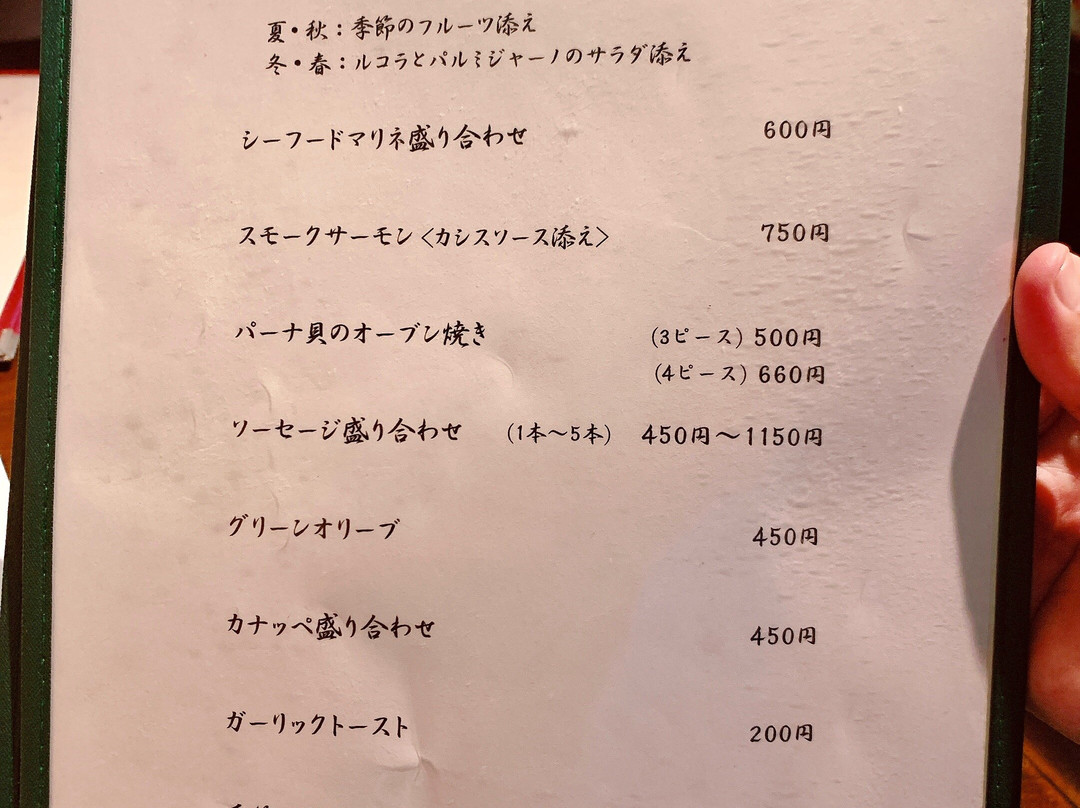 夏・秋：季節のフルーツ添え
冬・春：ルコラとパルミジャーノのサラダ添え
シーフードマリネ盛り合わせ 600円
スモークサーモン〈カシスソース添え〉 750円
パーナ貝のオーブン焼き (3ピース) 500円
(4ピース) 660円
ソーセージ盛り合わせ (1本～5本) 450円～1150円
グリーンオリーブ 450円
カナッペ盛り合わせ 450円
ガーリックトースト 200円